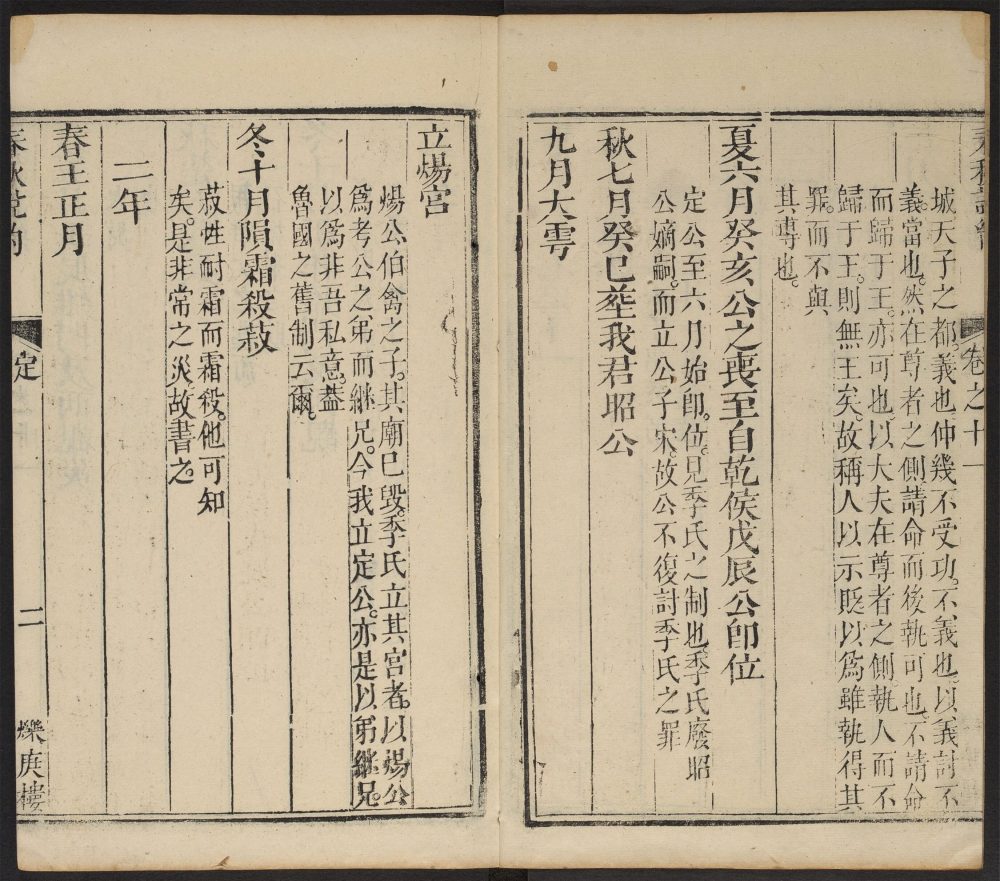 卷之十一
城天子之都義也仲幾不受功。不義也。以義討不
義當也。然在尊者之側請命而後執可也。不請命
而歸于王。亦可也。以大夫在尊者之側執人而不
歸于王。則無王矣。故稱人以示貶以爲雖執得其
罪。而不與
其專也。
夏六月癸亥公之喪至自乾侯戊辰公卽位
定公至六月始卽。位。見季氏之制也。季氏廢昭
公嫡嗣。而立公子宋。故公不復討季氏之罪
秋七月癸巳葬我君昭公
九月大雩
立煬宮
煬公。伯禽之子。其廟已毀。季氏立其宮者。以煬公
爲考公之弟而継兄。今我立定公。亦是以弟継兄。
以爲非吾私意。蓋
魯國之舊制云爾。
冬十月隕霜殺菽
菽性耐霜而霜殺。他可知
矣。是非常之災故書之。
二年
春王正月
定
二
爍庚樓